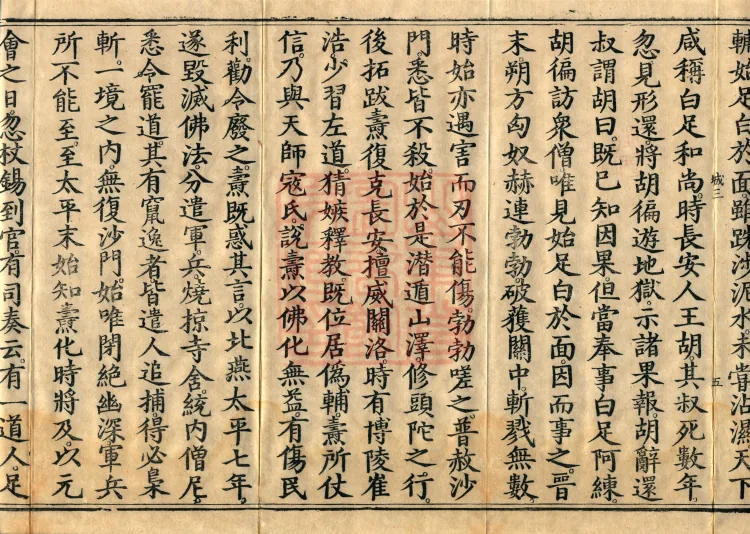 輔始足白於面雖跣涉泥水未甞沾濕天下
城三　五
咸稱白足和尚。時長安人王胡。其叔死數年。
忽見形還將胡徧遊地獄。示諸果報。胡辭還
叔謂胡曰。既已知因果。但當奉事白足阿練。
胡徧訪衆僧唯見始足白於面。因而事之。晉
末。朔方匈奴赫連勃勃。破獲關中。斬戮無數。
時始亦遇害而刃不能傷。勃勃嗟之。普赦沙
門。悉皆不殺。始於是潛遁山澤。修頭陀之行。
後拓跋燾復克長安。擅威關洛。時有博陵崔
浩。少習左道。猜嫉釋教。既位居僞輔。燾所仗
信。乃與天師寇氏。說燾以佛化無益。有傷民
利。勸令廢之。燾既惑其言。以北燕太平七年。
遂毀滅佛法。分遣軍兵。燒掠寺舍。統內僧尼。
悉令罷道。其有竄逸者。皆遣人追捕。得必梟
斬。一境之內。無復沙門。始唯閉絕幽深。軍兵
所不能至。至太平末。始知燾化時將及。以元
會之日。忽杖錫到宮。有司奏云。有一道人。足